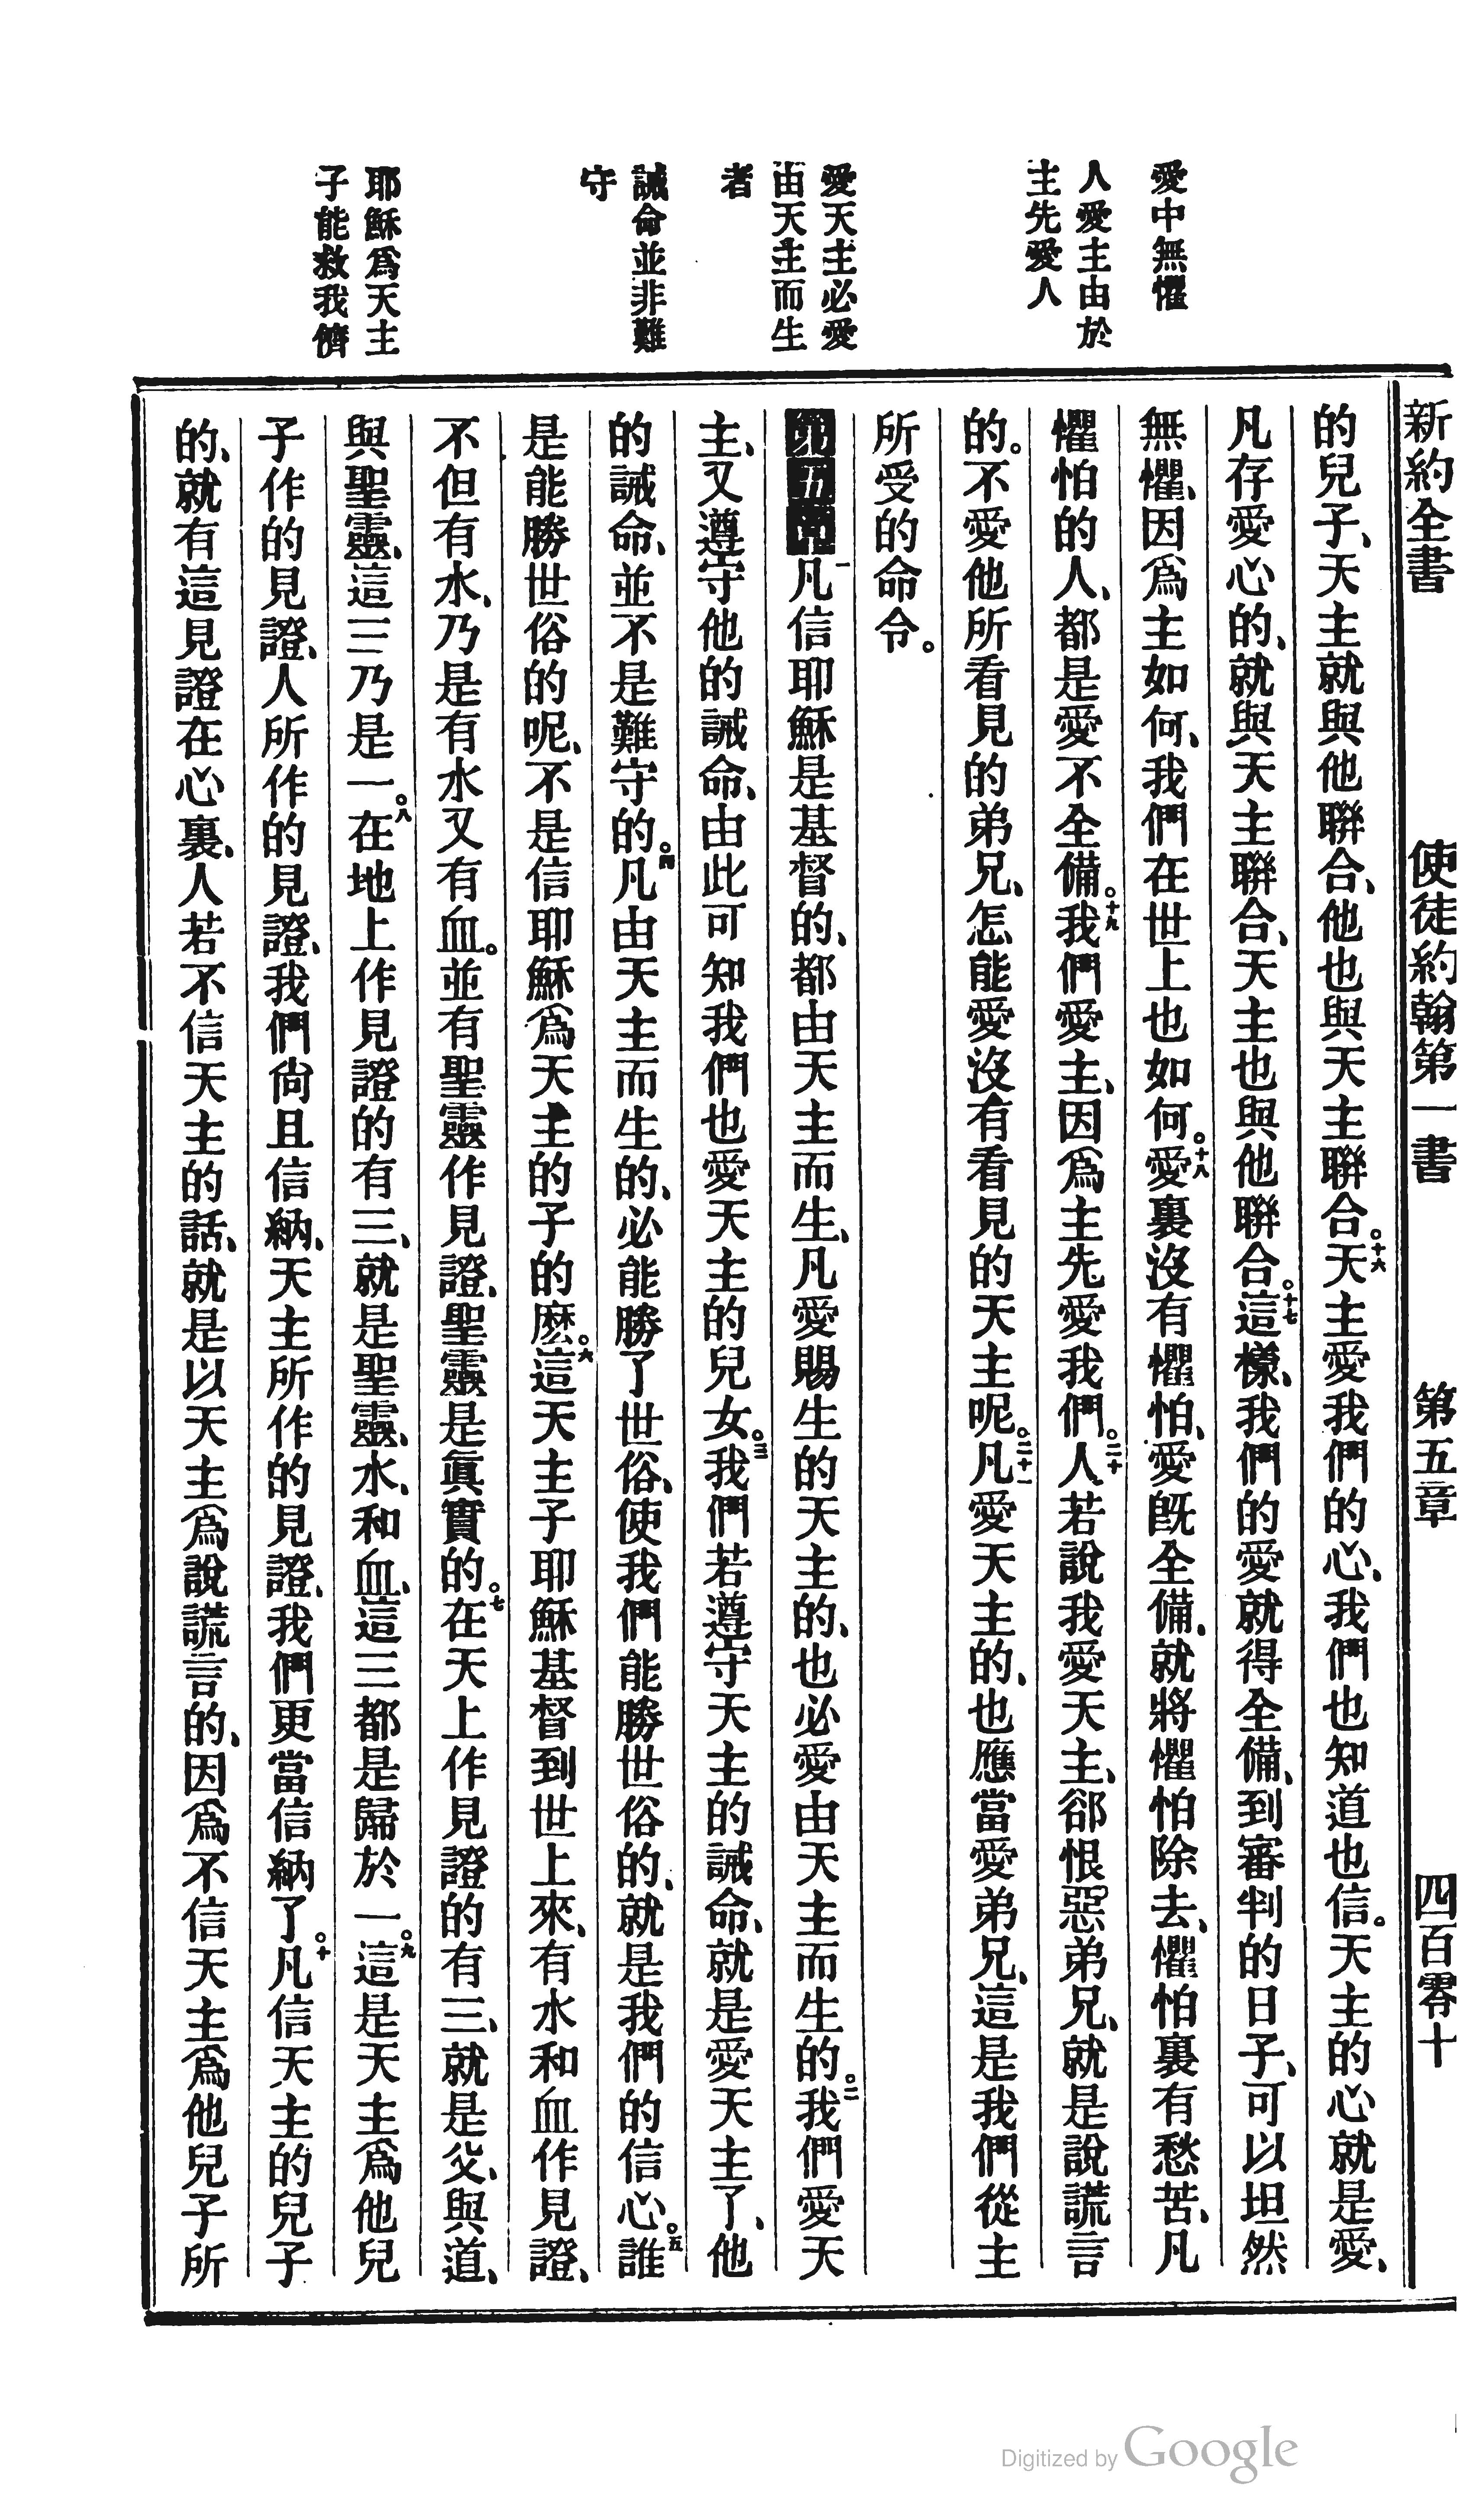 新約全書 使徒約翰第一書 第五章 四百零十
愛中無懼
人愛主由於
主先愛人
愛天主必愛
由天主而生
者
誡命並非難
守
耶穌爲天主
子能救我儕
的兒子、天主就與他聯合、他也與天主聯合。十六天主愛我們的心、我們也知道也信。天主的心就是愛、
凡存愛心的、就與天主聯合、天主也與他聯合。十七這樣、我們的愛就得全備、到審判的日子、可以坦然
無懼、因爲主如何、我們在世上也如何。十八愛裏沒有懼怕、愛旣全備、就將懼怕除去、懼怕裏有愁苦、凡
懼怕的人、都是愛不全備。十九我們愛主、因爲主先愛我們。二十人若說我愛天主、卻恨惡弟兄、就是說謊言
的。不愛他所看見的弟兄、怎能愛沒有看見的天主呢。二十一凡愛天主的、也應當愛弟兄、這是我們從主
所受的命令。
第五章一凡信耶穌是基督的、都由天主而生、凡愛賜生的天主的、也必愛由天主而生的。二我們愛天
主、又遵守他的誡命、由此可知我們也愛天主的兒女。三我們若遵守天主的誡命、就是愛天主了、他
的誡命、並不是難守的。四凡由天主而生的、必能勝了世俗、使我們能勝世俗的、就是我們的信心。五誰
是能勝世俗的呢、不是信耶穌爲天主的子的麽。六這天主子耶穌基督到世上來、有水和血作見證、
不但有水、乃是有水又有血。並有聖靈作見證、聖靈是眞實的。七在天上作見證的有三、就是父、與道、
與聖靈、這三乃是一。八在地上作見證的有三、就是聖靈、水、和血、這三都是歸於一。九這是天主爲他兒
子作的見證、人所作的見證、我們尙且信納、天主所作的見證、我們更當信納了。十凡信天主的兒子
的、就有這見證在心裏、人若不信天主的話、就是以天主爲說謊言的、因爲不信天主爲他兒子所
Digitized by Google